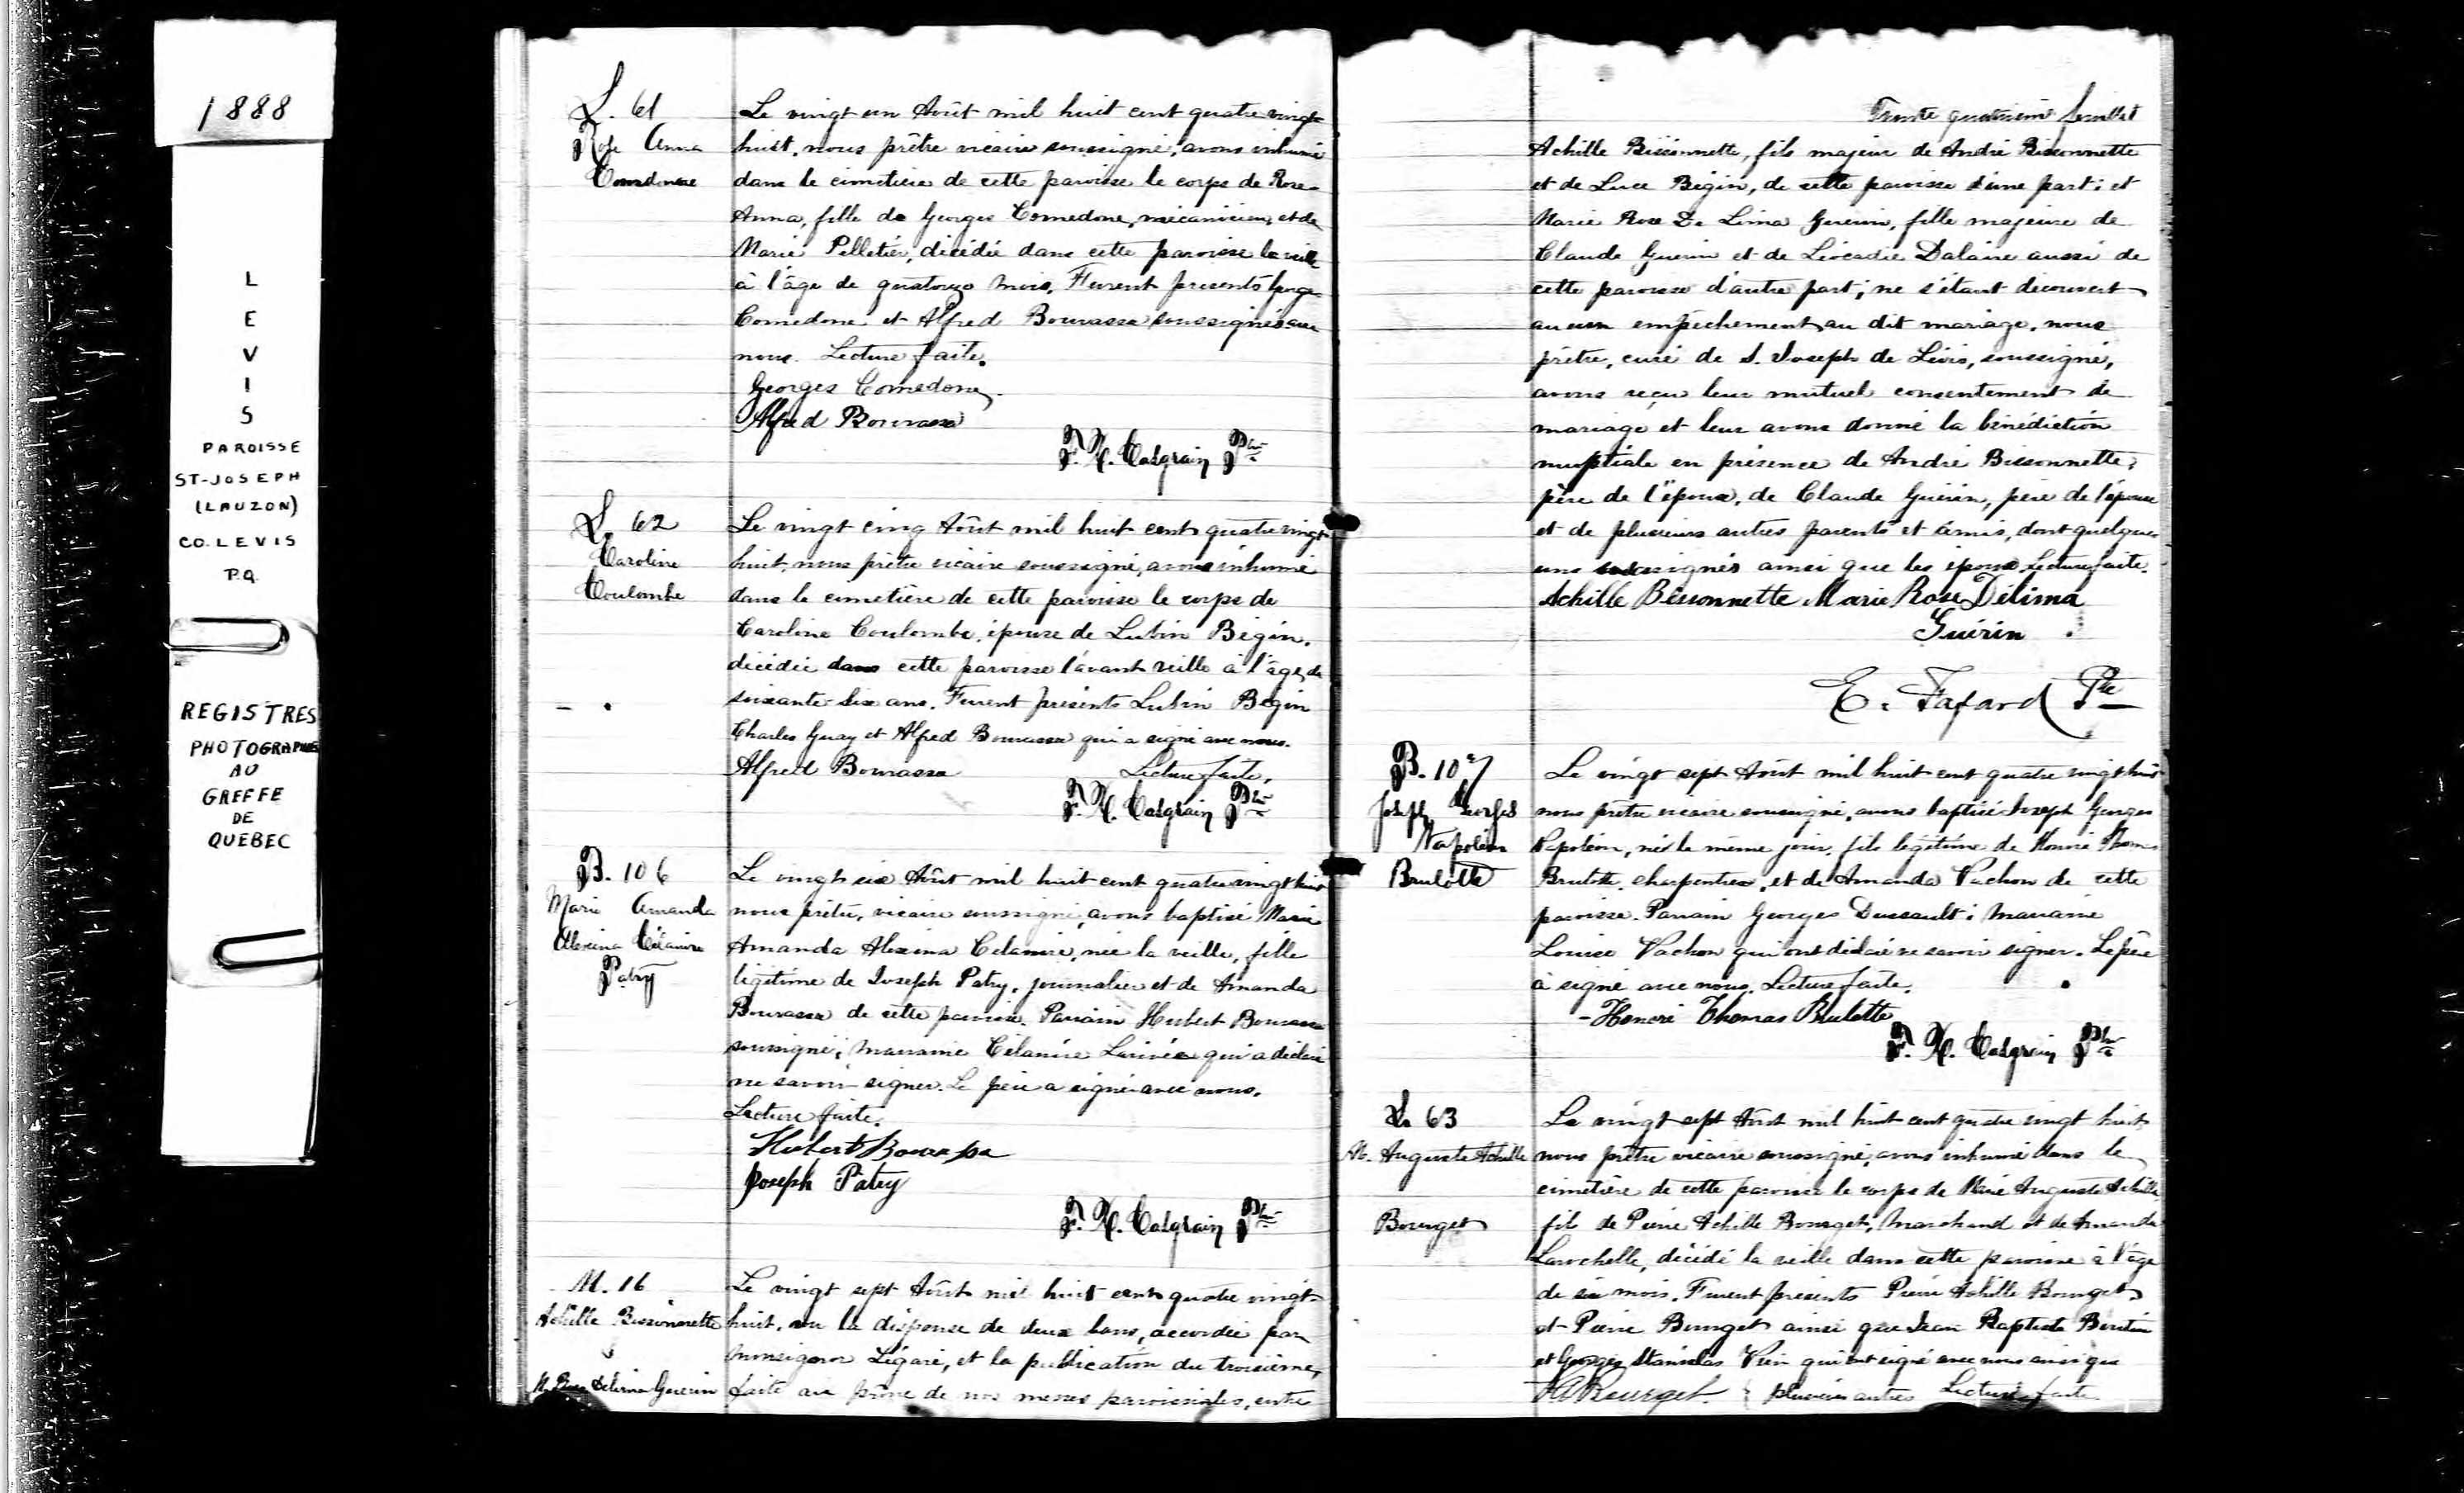 1888
L
E
V
I
S
PAROISSE
ST-JOSEPH
(LAUZON)
CO. LEVIS
P.Q.
REGISTRES
PHOTOGRAPHIE
AU
GREFFE
DE
QUEBEC
S. 61
Rose Anna
Comedone
Le vingt un Août mil huit cent quatre vingt
huit, nous prêtre vicaire soussigné, avons inhumé
dans le cimetière de cette paroisse le corps de Rose-
Anna, fille de Georges Comedone, mécanicien, et de
Marie Pelletier, décédée dans cette paroisse la veille
à l'âge de quatorze mois. Furent présents Georges
Comedone et Alfred Bourassa soussignés avec
nous. Lecture faite.
Georges Comedone
Alfred Bourassa
F. X. Casgrain Ptre
S. 62
Caroline
Coulombe
Le vingt cinq Août mil huit cent quatre vingt
huit, nous prêtre vicaire soussigné, avons inhumé
dans le cimetière de cette paroisse le corps de
Caroline Coulombe, épouse de Lubin Bégin,
décédée dans cette paroisse l'avant veille à l'âge de
soixante six ans. Furent présents Lubin Bégin
Charles Guay et Alfred Bourassa qui a signé avec nous.
Alfred Bourassa Lecture faite.
F. X. Casgrain Ptre
B. 106
Marie Amanda
Alexina Célanire
Patry
Le vingt six Août mil huit cent quatre vingt huit
nous prêtre, vicaire soussigné, avons baptisé Marie
Amanda Alexina Celanire, née la veille, fille
légitime de Joseph Patry, journalier et de Amanda
Bourassa de cette paroisse. Parrain Hubert Bourassa
soussigné; marraine Célanire Larivée qui a déclaré
ne savoir signer. Le père a signé avec nous.
Lecture faite.
Hubert Bourassa
Joseph Patry
F. X. Casgrain Ptre
M. 16
Achille Bissonnette
&
M. Rose Delima Guerin
Le vingt sept Août mil huit cent quatre vingt-
huit, vu la dispense de deux bans, accordée par
Monsignor Légaré, et la publication du troisième,
faite au prône de nos messes paroissiales, entre
Trente quatrième feuillet
Achille Bissonnette, fils majeur de André Bissonnette
et de Luce Bégin, de cette paroisse d'une part; et
Marie Rose De Lima Guerin, fille majeure de
Claude Guerin et de Léocadie Dalaire aussi de
cette paroisse d'autre part; ne s'étant découvert
aucun empêchement au dit mariage, nous
prêtre, curé de S. Joseph de Lévis, soussigné,
avons reçu leur mutuel consentement de
mariage et leur avons donné la bénédiction
nuptiale en présence de André Bissonnette,
père de l'époux, de Claude Guérin, père de l'épouse
et de plusieurs autres parents et amis, dont quelques
uns soussignés ainsi que les époux. Lecture faite.
Achille Bissonnette Marie Rose Délima
Guérin
E. Fafard Ptre
B. 107
Joseph Georges
Napoléon
Brulotte
Le vingt sept Août mil huit cent quatre vingt huit
nous prêtre vicaire soussigné, avons baptisé Joseph Georges
Napoléon, né le même jour, fils légitime de Honoré Thomas
Brulotte, charpentier, et de Amanda Vachon de cette
paroisse. Parrain Georges Dussault; marraine
Louise Vachon qui ont déclaré ne savoir signer. Le père
a signé avec nous. Lecture faite.
Honoré Thomas Brulotte
F. X. Casgrain Ptre
S. 63
M. Auguste Achille
Bourget
Le vingt sept Août mil huit cent quatre vingt huit,
nous prêtre vicaire soussigné, avons inhumé dans le
cimetière de cette paroisse le corps de Marie Auguste Achille,
fils de Pierre Achille Bourget, Marchand et de Amanda
Larochelle, décédé la veille dans cette paroisse à l'âge
de six mois. Furent présents Pierre Achille Bourget
et Pierre Bourget ainsi que Jean Baptiste
et Georges Stanislas Vien qui ont signé avec nous ainsi que
Bourget plusieurs autres Lecture faite